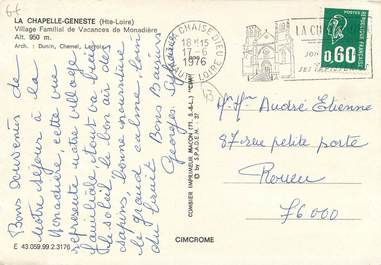 LA CHAPELLE-GENESTE (Hte-Loire)
Village Familial de Vacances de Monadière
Alt. 950 m.
Arch. : Dunin, Chemel,
LA CHAISE DIEU
18 H15
17-6
1976
HAUTE LOIRE
LA CH
SON
SES TAPISSERIES
0,60
Bons souvenirs de
notre séjour à la
Monadière, cette vue
représente notre village
familiale, tout va bien
le soleil le bon air des
sapins, bonne nourriture
le grand calme, loin
du bruit Bons Baisers
Georges
COMBIER IMPRIMEUR MACON (71. S.-&-L.) "CIM"
© by S.P.A.D.E.M. - 37
Mr Mme André Etienne
87 rue petite porte
Rouen
76000
E 43.059.99.2.3176
CIMCROME